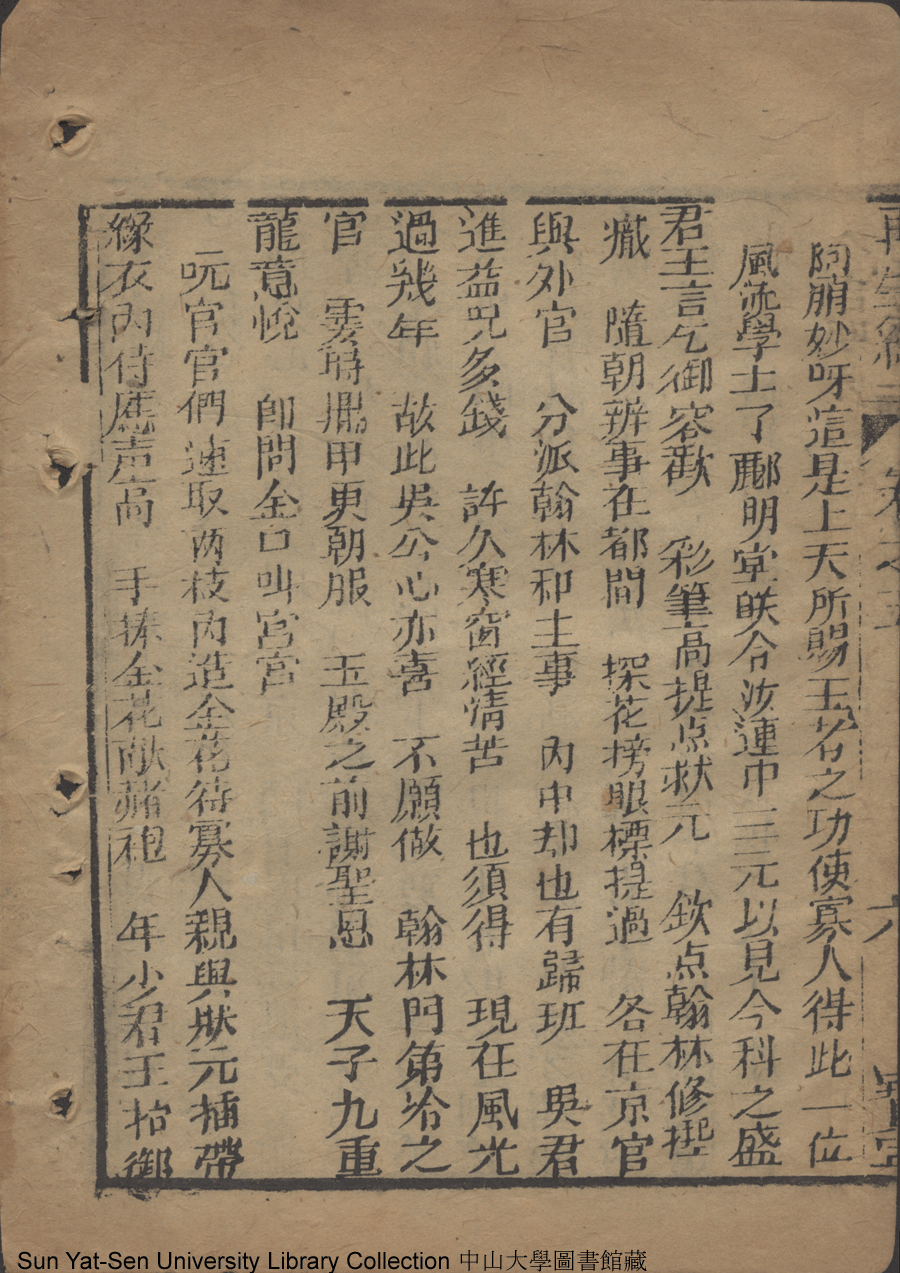 阿朋妙呀這是上天所賜王者之功使寡人得此一位
風流學士了酈明堂眹合汝連中三元以見今科之盛
君王言乞御容歡　彩筆高提点狀元　欽点翰林修撰
職　隨朝辨事在都間　探花榜眼標提過　各在京官
與外官　分派翰林和主事　內中却也有歸班　吳君
進益兄多錢　許久寒窗經情苦　也須得　現在風光
過幾年　故此吳公心亦喜　不願做　翰林門第冷之
官　鼎甲更朝服　玉殿之前謝聖恩　天子九重
龍意悅　即問金口叫宮宮
吭官官們速取两枝內造金花待寡人親與狀元插帶
綠衣內侍應声高　手捧金花献赭袍　年少君王抬御
再生緣　卷之五　六
Sun Yat-Sen University Library Collection 中山大學圖書館藏